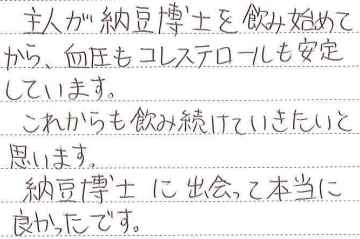 主人が納豆博士を飲み始めて
から、血圧もコレステロールも安定
しています。
これからも飲み続けていきたいと
思います。
納豆博士に出会って本当に
良かったです。